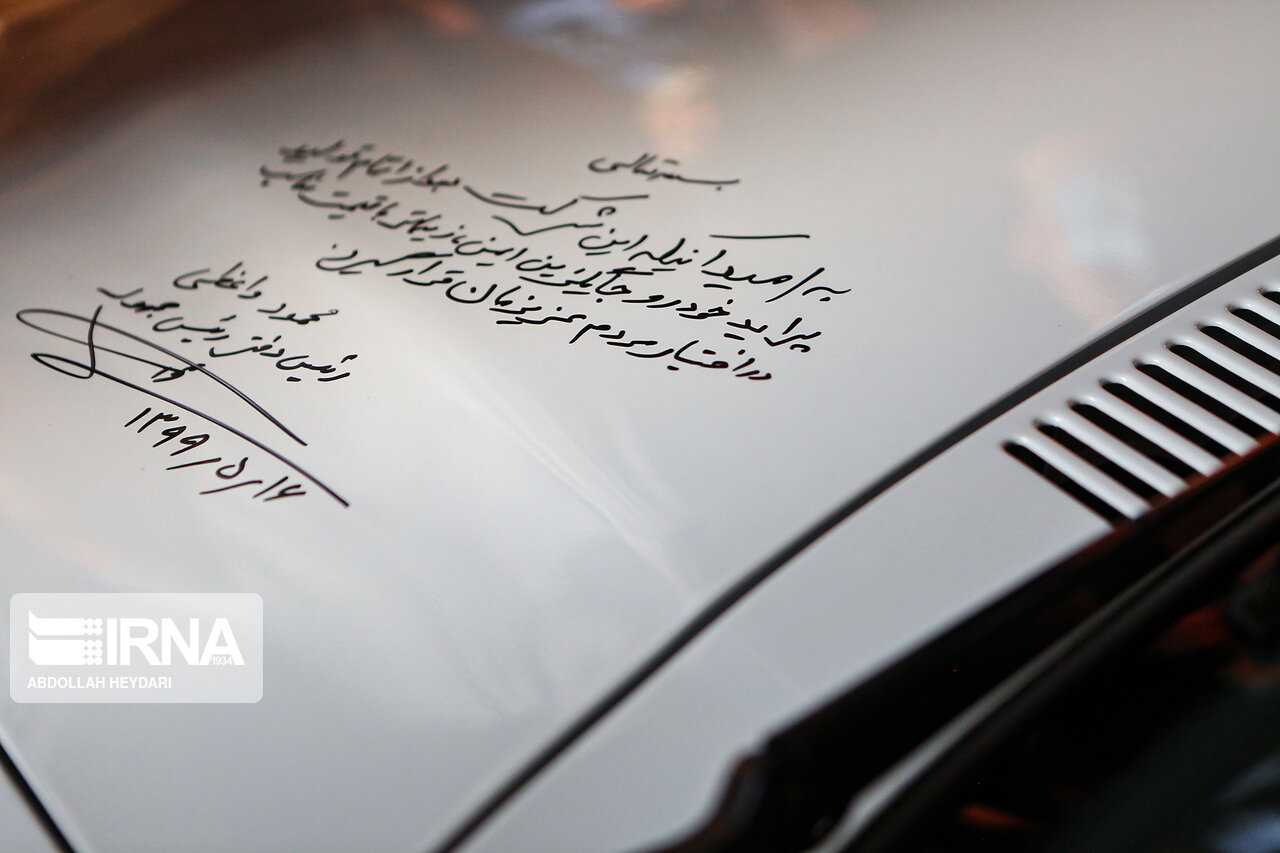 بسمه تعالی
به امید آنکه این شرکت بعد از اتمام تولید
پراید خودرو جایگزین ایمن، زیباتر با قیمت مناسب
در اختیار مردم عزیزمان قرار گیرد
محمود واعظی
رئیس دفتر رئیس جمهور
۱۳۹۹/۵/۱۶
IRNA
1934
ABDOLLAH HEYDARI